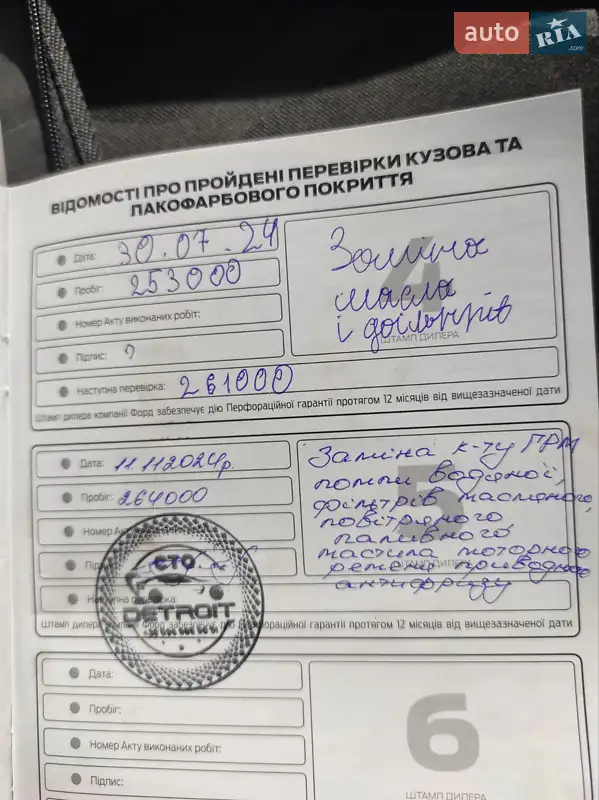 auto RIA .com
ВІДОМОСТІ ПРО ПРОЙДЕНІ ПЕРЕВІРКИ КУЗОВА ТА
ЛАКОФАРБОВОГО ПОКРИТТЯ
Дата: 30.07.24
Пробіг: 253000
Номер Акту виконаних робіт:
Підпис:
Наступна перевірка: 261000
4
Заміна
масла
і фільтрів
ШТАМП ДИЛЕРА
Штамп дилера компанії Форд забезпечує дію Перфораційної гарантії протягом 12 місяців від вищезазначеної дати
Дата: 11.11.2024р.
Пробіг: 264000
Номер Акту
Наступна перевірка:
5
Заміна к-ту ГРМ
помпи водяної,
фільтрів масляного,
повітряного,
паливного
мастила моторного
ременя приводного
антифризу
СТО
DETROIT
Штамп дилера компанії Форд забезпечує дію Перфораційної гарантії протягом 12 місяців від вищезазначеної дати
Дата:
Пробіг:
Номер Акту виконаних робіт:
Підпис:
6
ШТАМП ДИЛЕРА